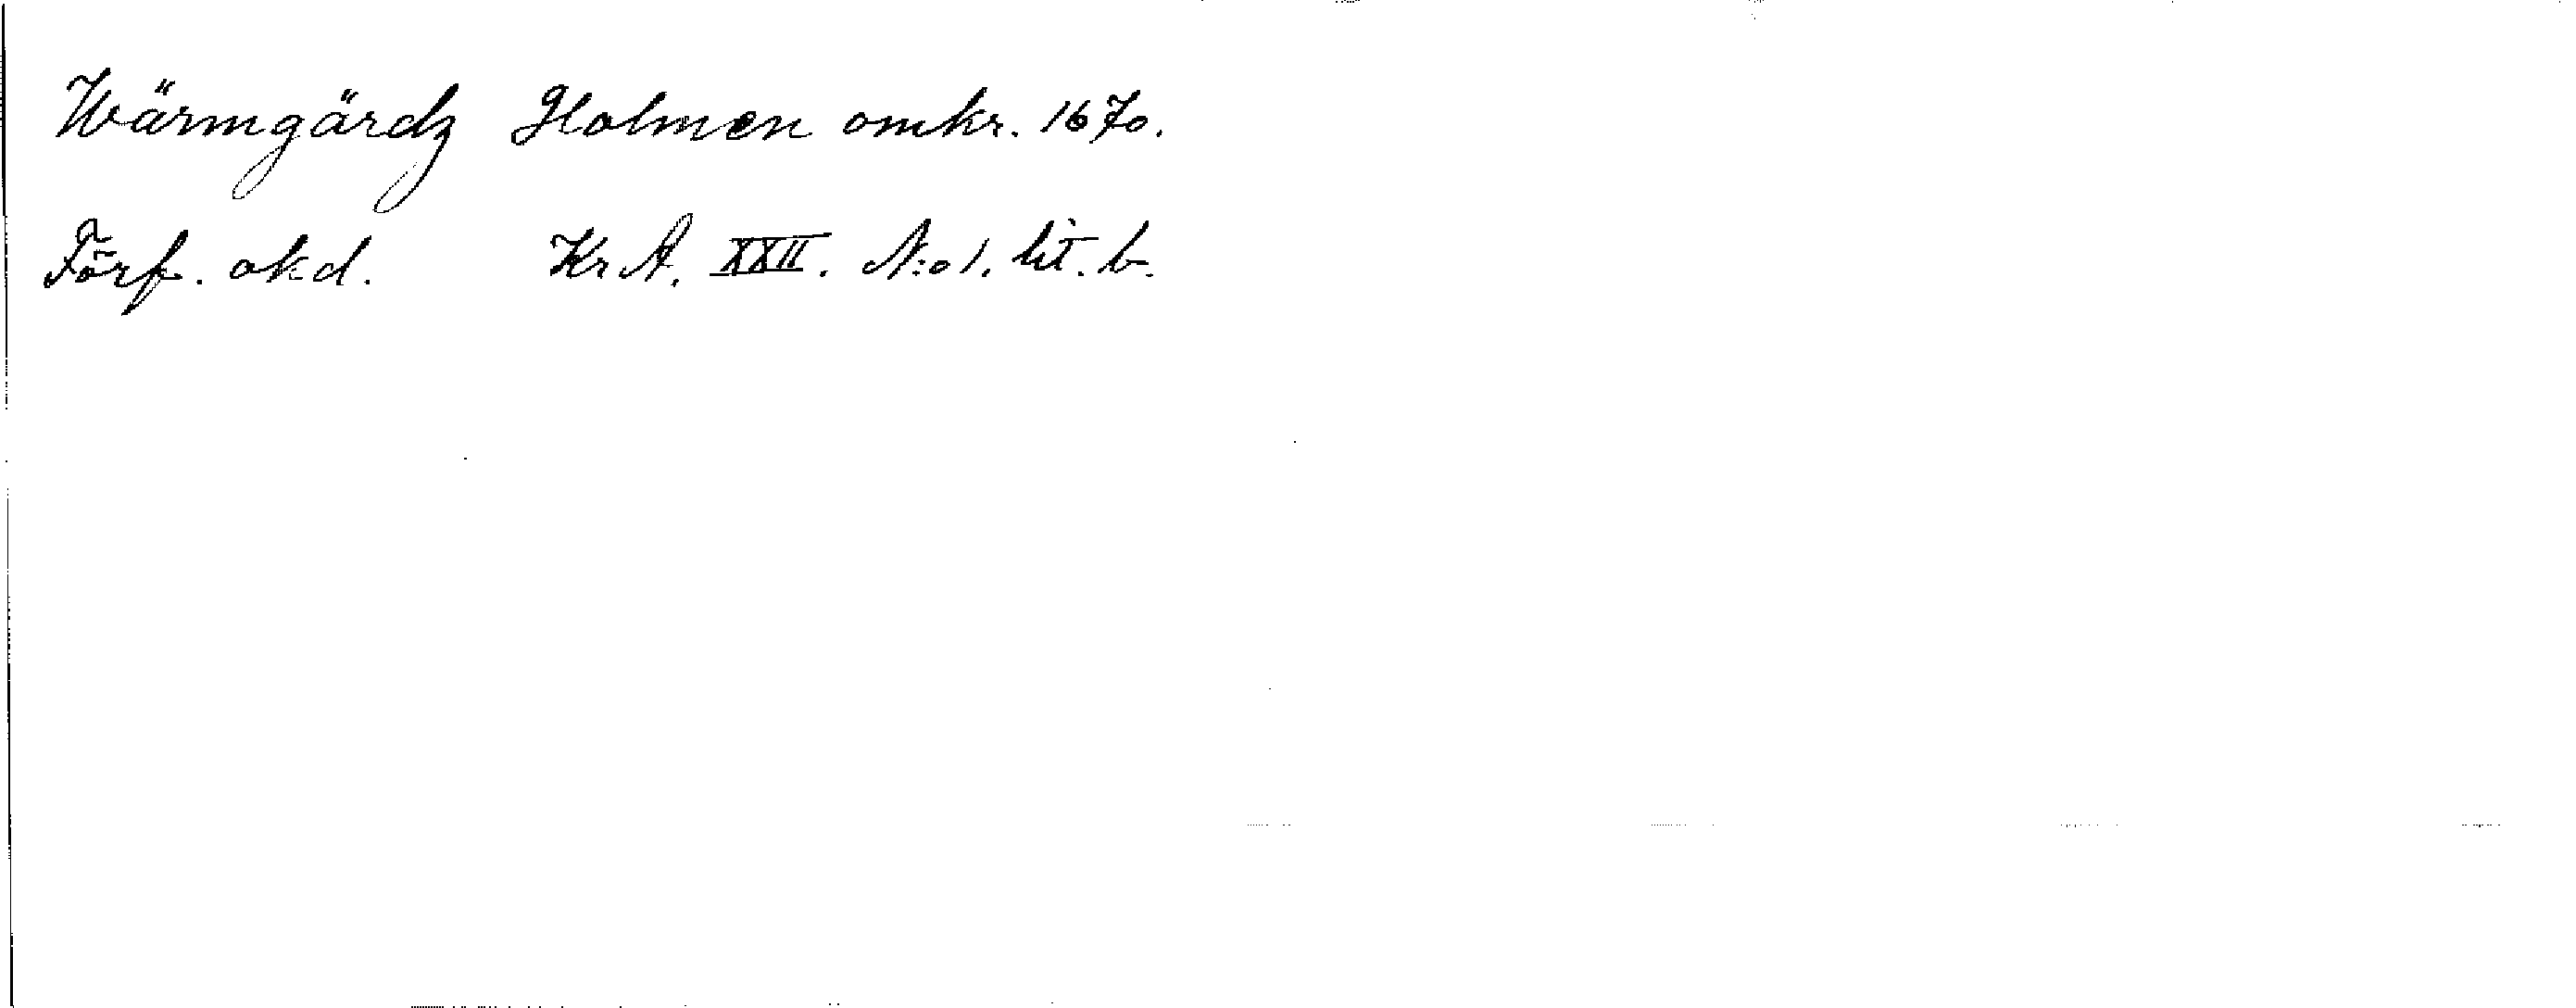 Wärmgärdz Holmen omkr. 1670.
Förf. okd. Kr A. XXII. N:o 1. lit. b.